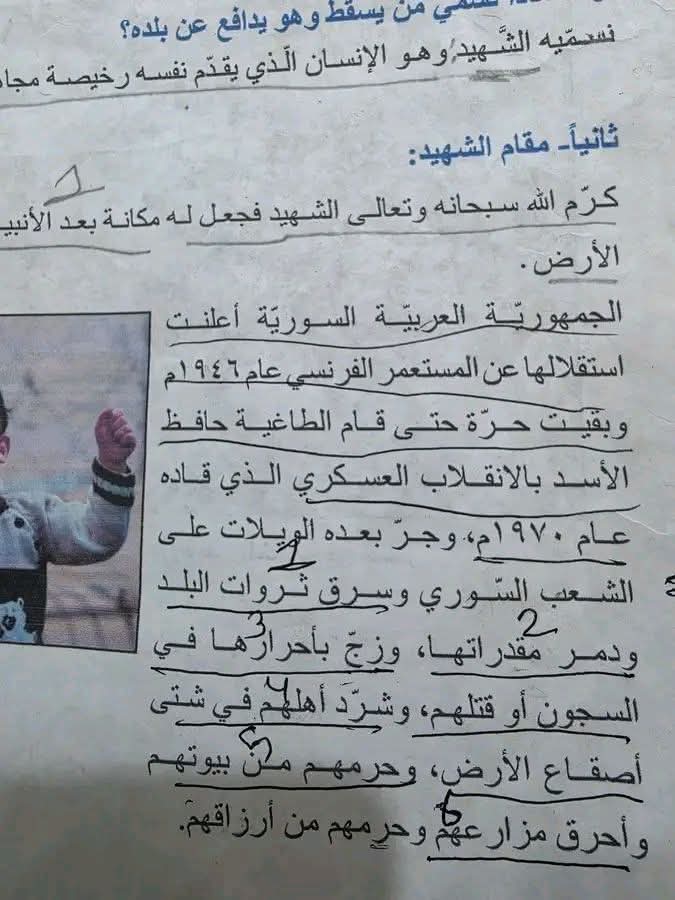 نسمي من يسقط وهو يدافع عن بلده؟
نسمّيه الشّهيد، وهو الإنسان الّذي يقدّم نفسه رخيصة
ثانياً- مقام الشهيد:
1
كرّم الله سبحانه وتعالى الشهيد فجعل له مكانة بعد
الأرض.
الجمهوريّة العربيّة السوريّة أعلنت
استقلالها عن المستعمر الفرنسي عام ١٩٤٦م
وبقيت حرّة حتى قام الطاغية حافظ
الأسد بالانقلاب العسكري الذي قاده
عام ١٩٧٠م، وجرّ بعده الويلات على
1
الشعب السّوري وسرق ثروات البلد
2 3
ودمر مقدراتها، وزجّ بأحرارها في
4
السجون أو قتلهم، وشرّد أهلهم في شتى
5
أصقاع الأرض، وحرمهم من بيوتهم
6
وأحرق مزارعهم وحرمهم من أرزاقهم.